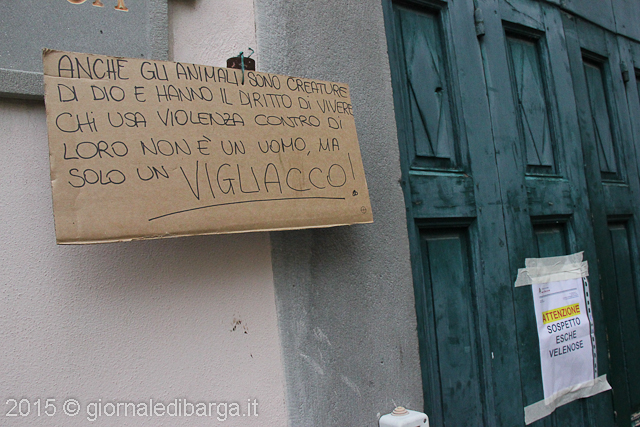 ANCHE GLI ANIMALI SONO CREATURE
DI DIO E HANNO IL DIRITTO DI VIVERE
CHI USA VIOLENZA CONTRO DI
LORO NON È UN UOMO, MA
SOLO UN VIGLIACCO!
ATTENZIONE
SOSPETTO
ESCHE
VELENOSE
2015 © giornaledibarga.it